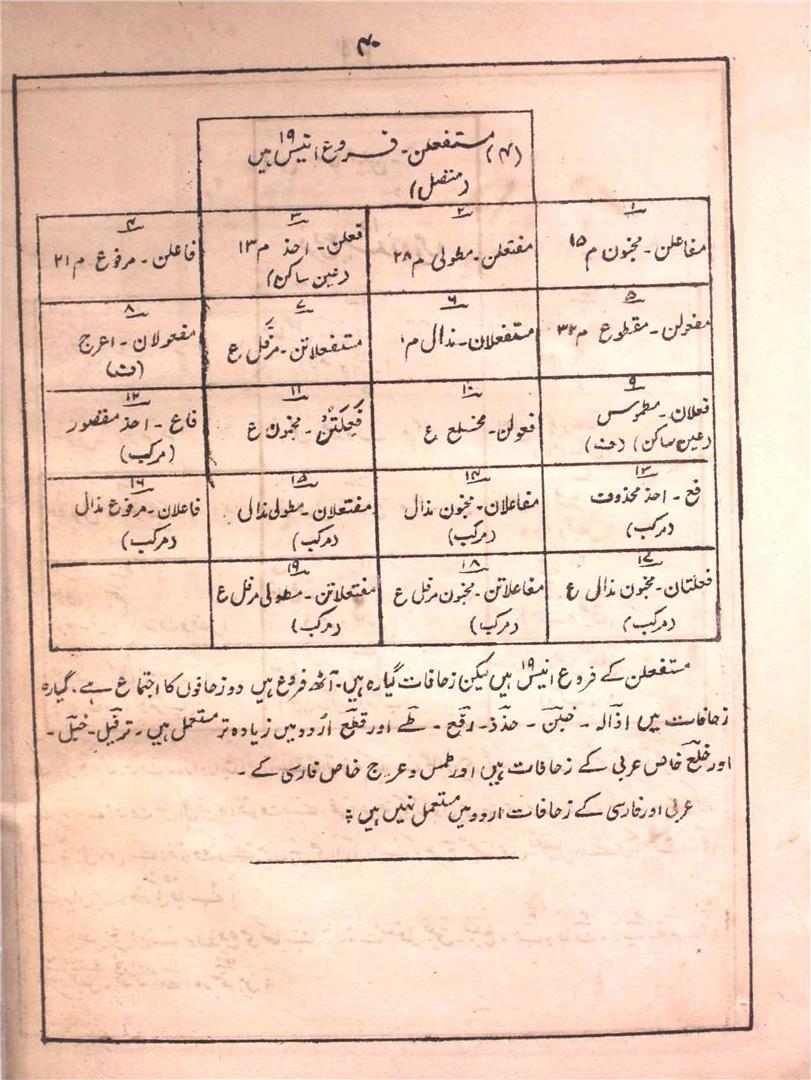 ۴۰
(۴) مستفعلن۔ فروع انیس ۱۹ ہیں
(متصل)
۱
مفاعلن۔ مخبون م ۱۵
۲
مفتعلن۔ مطوی م ۲۸
۳
فعلن۔ احذ م ۱۳
(عین ساکن)
۴
فاعلن۔ مرفوع م ۲۱
۵
مفعولن۔ مقطوع م ۳۲
۶
مستفعلان۔ مذال م
۷
مستفعلاتن۔ مرفل ع
۸
مفعولان۔ اعرج
(ف)
۹
فعلان۔ مطموس
(عین ساکن) (ف)
۱۰
فعولن۔ مخلع ع
۱۱
فَعِلَتُن۔ مخبول ع
۱۲
فاع۔ احذ مقصور
(مرکب)
۱۳
فع۔ احذ محذوف
(مرکب)
۱۴
مفاعلان۔ مخبون مذال
(مرکب)
۱۵
مفتعلان۔ مطوی مذال
(مرکب)
۱۶
فاعلان۔ مرفوع مذال
(مرکب)
۱۷
فعلتان۔ مخبون مذال ع
(مرکب)
۱۸
مفاعلاتن۔ مخبون مرفل ع
(مرکب)
۱۹
مفتعلاتن۔ مطوی مرفل ع
(مرکب)
مستفعلن کے فروع انیس ۱۹ ہیں لیکن زحافات گیارہ ہیں۔ آٹھ فروع ہیں دو زحافوں کا اجتماع ہے۔ گیارہ
زحافات میں اذالہ۔ خبن۔ حذذ۔ رفع۔ طے اور قطع اردو میں زیادہ تر مستعمل ہیں۔ ترفیل۔ خبل۔
اور خلع خاص عربی کے زحافات ہیں اور طمس و عرج خاص فارسی کے۔
عربی اور فارسی کے زحافات اردو میں مستعمل نہیں ہیں؛